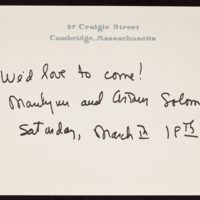 37 Craigie Street
Cambridge, Massachusetts
We'd love to come!
Marilynn and Arthur Solom
Saturday, March 18TH